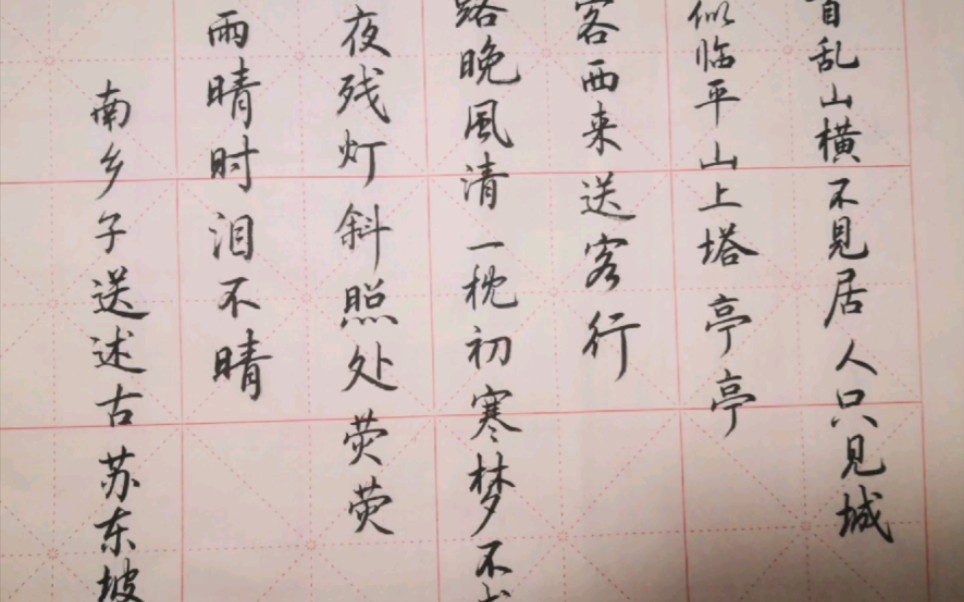 首乱山横不见居人只见城
似临平山上塔亭亭
客西来送客行
路晚風清一枕初寒梦不成
夜残灯斜照处荧荧
雨晴时泪不晴
南乡子送述古苏东坡